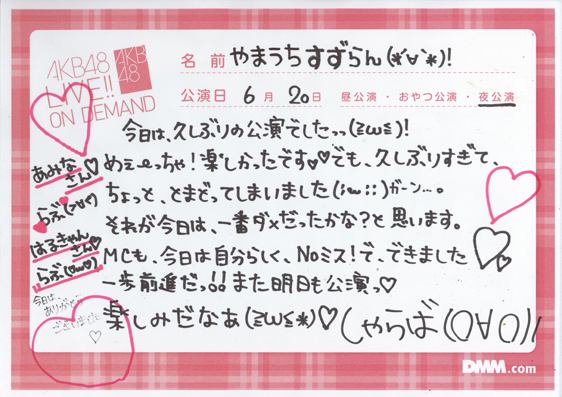 AKB48
LIVE!!
ON DEMAND
AKB
48
名前 やまうちすずらん(*´∀`*)!
公演日 6月 20日 昼公演・おやつ公演・夜公演
今日は、久しぶりの公演でしたっっ(≧ω≦)!
めぇーっちゃ!楽しかったです♡♡でも、久しぶりすぎて、
ちょっと、とまどってしまいました(;ω;;)ガーン…。
それが今日は、一番ダメだったかな?と思います。
MCも、今日は自分らしく、Noミス!で、できました
一歩前進だっ!!また明日も公演っ♡
楽しみだなぁ(≧ω≦*)♡しゃらば(O∀O)//
あみな
さん♡
らぶ
はるきゃん
さん♡
らぶ(♡ω♡)
今日は
ありがとー
ございました
♡
DMM.com